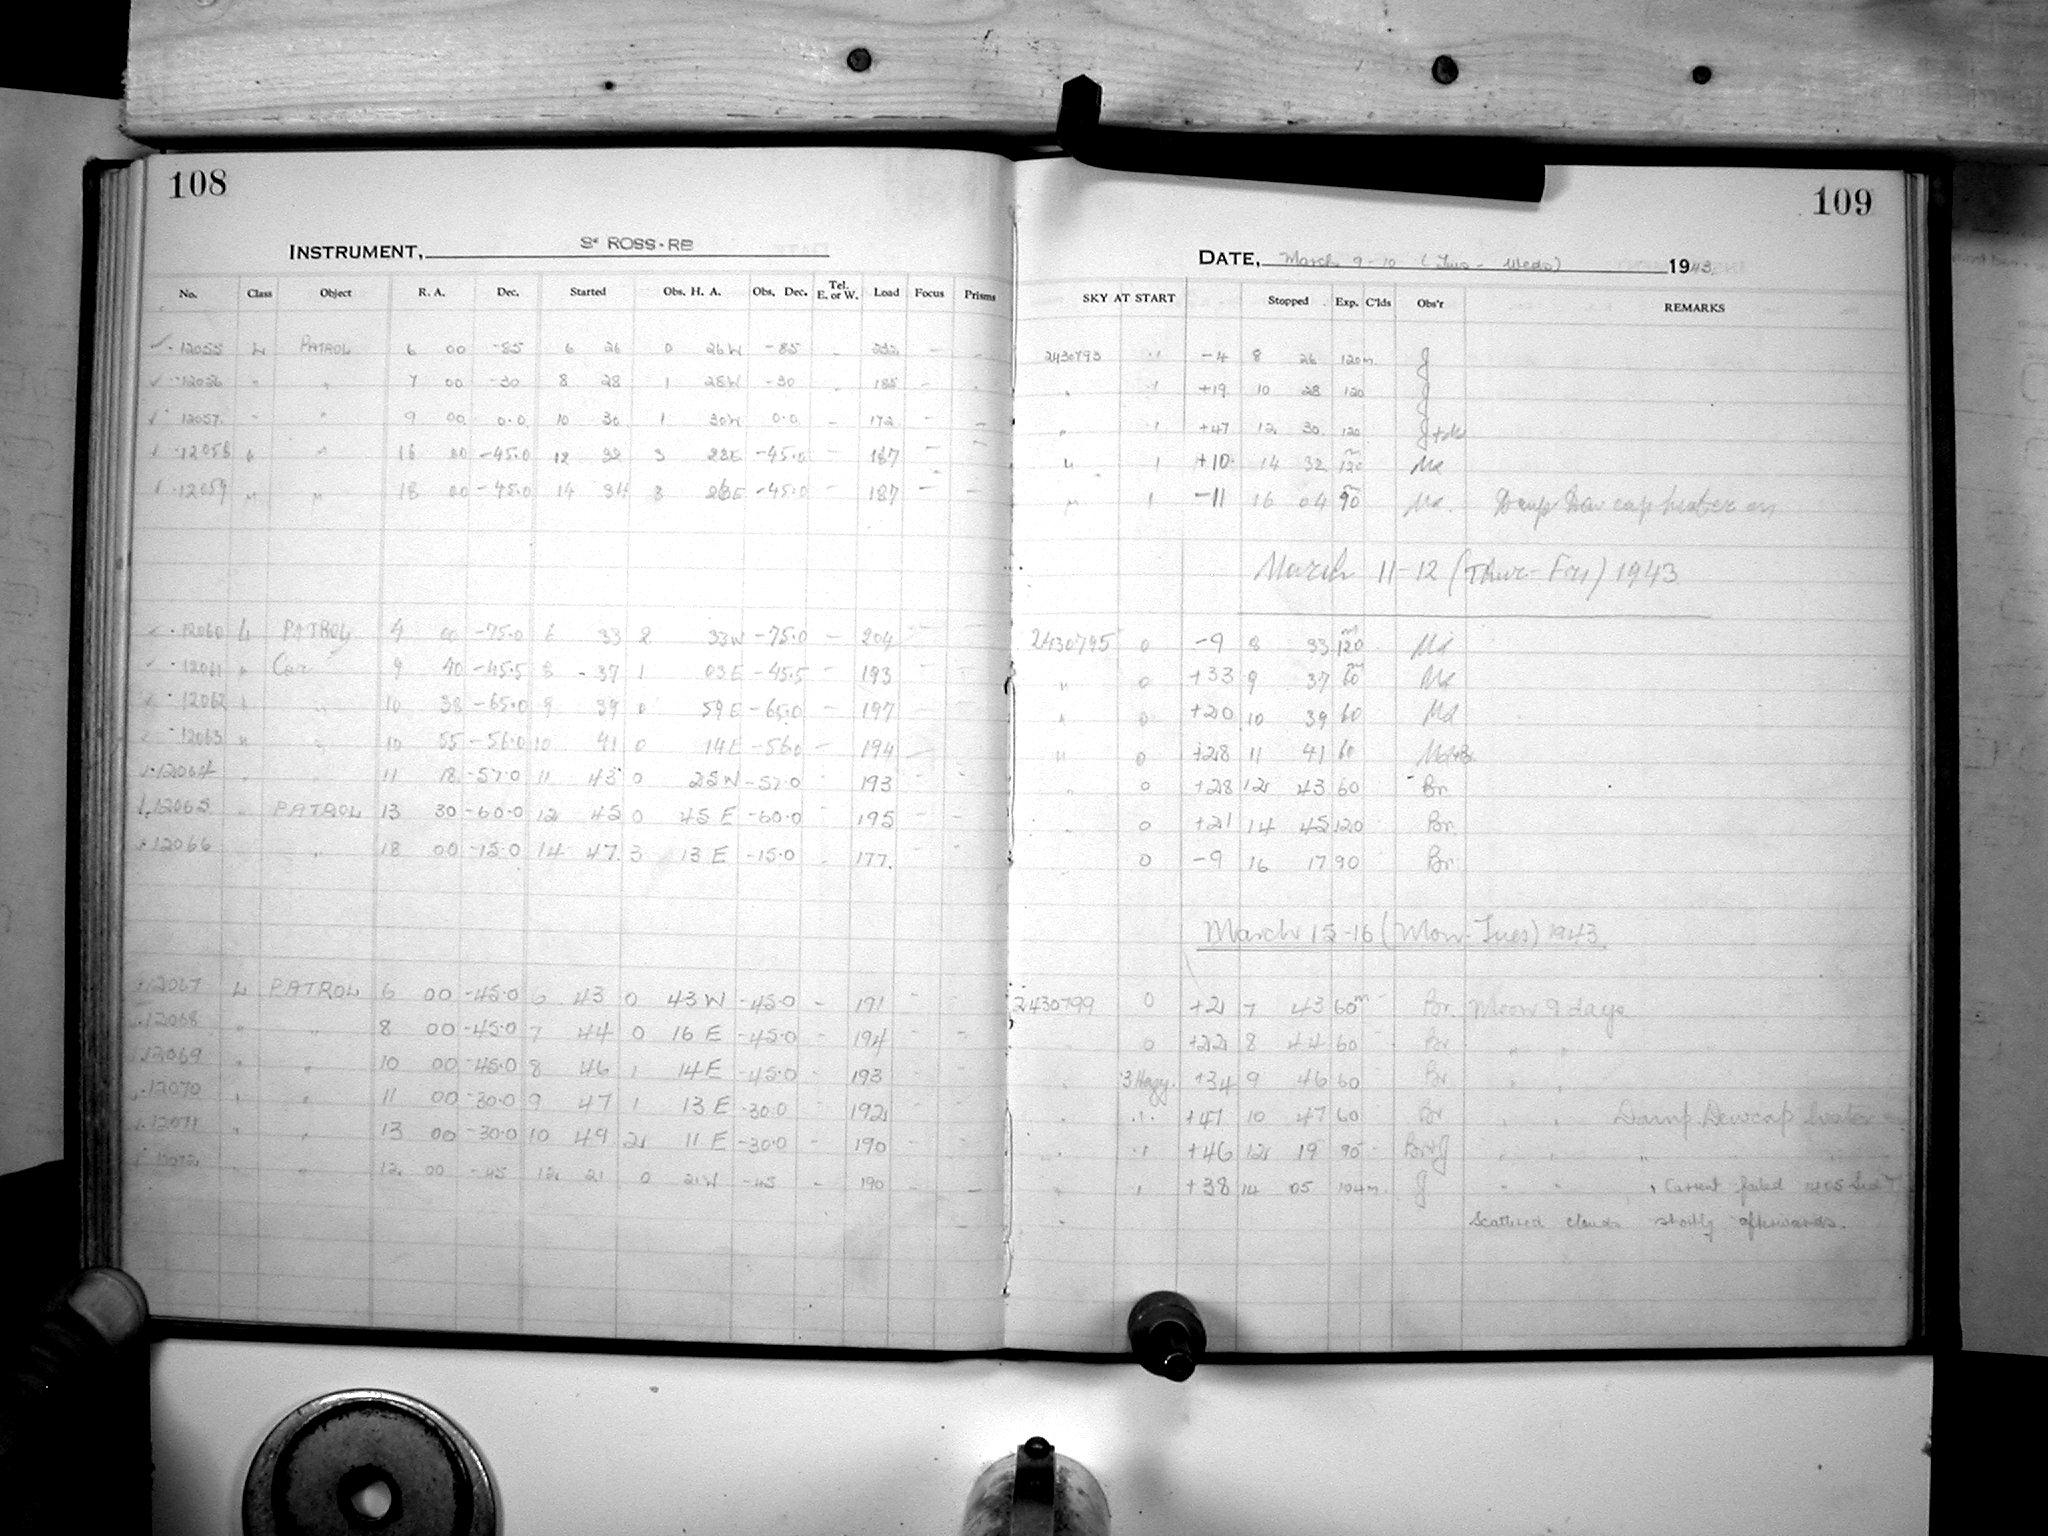 108
INSTRUMENT, ROSS-RB
No. Class Object R. A. Dec. Started Obs. H. A. Obs. Dec. Tel. E. or W. Load Focus Prisms
12055 L PATROL 6 00 -85 6 26 0 26W -85 - 232 - -
12056 " " 7 00 -30 8 28 1 28W -30 - 185 - -
12057 " " 9 00 0.0 10 30 1 30W 0.0 - 172 - -
12058 " " 16 00 -45.0 12 32 3 28E -45.0 - 187 - -
12059 " " 18 00 -45.0 14 34 3 E -45.0 - 187 - -
12060 L PATROL 4 00 -75.0 6 33 2 33W -75.0 - 204 - -
12061 " Car 9 40 -45.5 8 37 1 03E -45.5 - 193 - -
12062 " " 10 38 -65.0 9 39 0 59E -65.0 - 197 - -
12063 " " 10 55 -56.0 10 41 0 14E -56.0 - 194 - -
12064 " " 11 18 -57.0 11 43 0 25W -57.0 - 193 - -
12065 " PATROL 13 30 -60.0 12 45 0 45E -60.0 195 - -
12066 " 18 00 -15.0 14 47 3 13E -15.0 - 177 - -
12067 L PATROL 6 00 -45.0 6 43 0 43W -45.0 - 191 - -
12068 " " 8 00 -45.0 7 44 0 16E -45.0 - 194 - -
12069 " " 10 00 -45.0 8 46 1 14E -45.0 - 193 - -
12070 " " 11 00 -30.0 9 47 1 13E -30.0 - 192 - -
12071 " " 13 00 -30.0 10 49 2 11E -30.0 - 190 - -
12072 " " 12 00 -45 12 21 0 21W -45 - 190 - -
109
DATE, March 9-10 (Tues - Weds) 1943
SKY AT START Stopped Exp. C'lds Obs'r REMARKS
2430793 .1 -4 8 26 120m J
" .1 +19 10 28 120 J
" .1 +47 12 30 120 J+Md
" 1 +10 14 32 120m Md
" 1 -11 16 04 90m Md. Damp Dew cap heater on
March 11-12 (Thur-Fri) 1943
2430795 0 -9 8 33 120m Md
" 0 +33 9 37 60m Md
" 0 +20 10 39 60 Md
" 0 +28 11 41 60 Md+Br.
" 0 +28 12 43 60 Br
" 0 +21 14 45 120 Br.
0 -9 16 17 90 Br
March 15-16 (Mon-Tues) 1943.
2430799 0 +21 7 43 60m Br. Moon 9 days
" 0 +22 8 44 60 Br " " "
" 3 Hazy. +34 9 46 60 Br " "
" .1. +41 10 47 60 Br " " Damp. Dewcap heater
" .1 +46 12 19 90 Br+J " " "
" 1 +38 14 05 104m. J " " " Current failed 1405
Scattered clouds shortly afterwards.